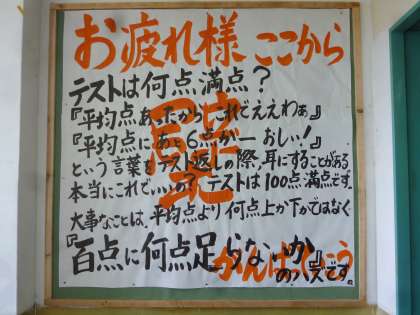 お疲れ様 ここから
テストは何点満点？
『平均点あったから これでええわぁ』
『平均点にあと6点がー おしぃ!』
という言葉をテスト返しの際、耳にすることがある
本当にこれでいいの？ テストは100点満点です。
大事なことは、平均点より何点上か下かではなく
『百点に何点足らないか』
のハズです。
がんばっていこう